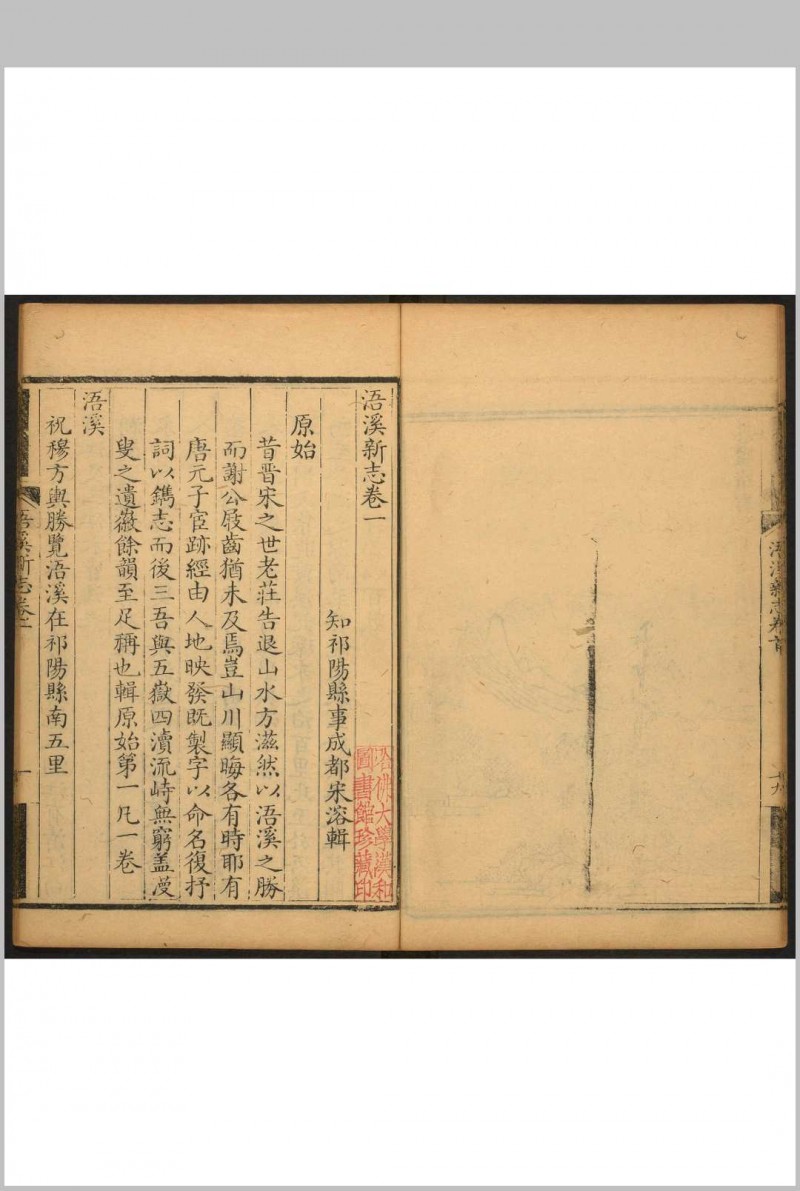 浯溪新志卷一
知祁陽縣事成都宋溶輯
原始
昔晋宋之世老莊告退山水方滋然以浯溪之勝
而謝公屐齒猶未及焉豈山川顯晦各有時耶有
唐元子宦跡經由人地映發既製字以命名復抒
詞以鐫志而後三吾與五嶽四瀆流峙無窮盖漫
叟之遺徽餘韻至足稱也輯原始第一凡一卷
浯溪
祝穆方輿勝覽浯溪在祁陽縣南五里
浯溪新志卷一
一
浯溪新志卷首
哈佛大學漢和
圖書館珍藏印